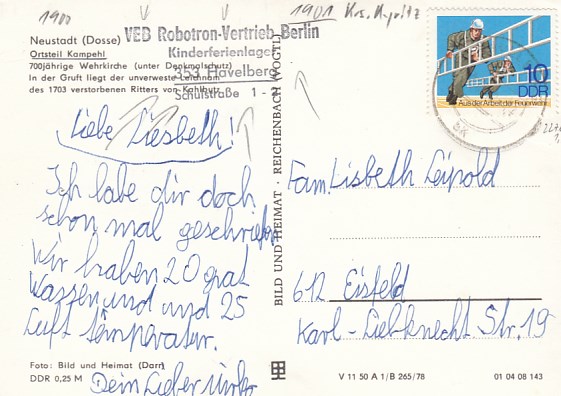 1900
1901 Krs. Kyritz
Neustadt (Dosse)
Ortsteil Kampehl
700jährige Wehrkirche (unter Denkmalschutz)
In der Gruft liegt der unverweste Leichnam
des 1703 verstorbenen Ritters von Kahlbutz
VEB Robotron-Vertrieb Berlin
Kinderferienlager
353 Havelberg
Schulstraße 1 - 2
10
DDR
Aus der Arbeit der Feuerwehr
Liebe Liesbeth!
Ich habe dir doch
schon mal geschrieben
Wir haben 20 grat
Wassen und und 25
Luft temperatur.
Dein Lieber
Fam. Lisbeth Leipold
612 Eisfeld
Karl-Liebknecht Str. 19
BILD UND HEIMAT · REICHENBACH (VOGTL)
Foto: Bild und Heimat (Darr)
DDR 0,25 M
V 11 50 A 1/B 265/78
01 04 08 143